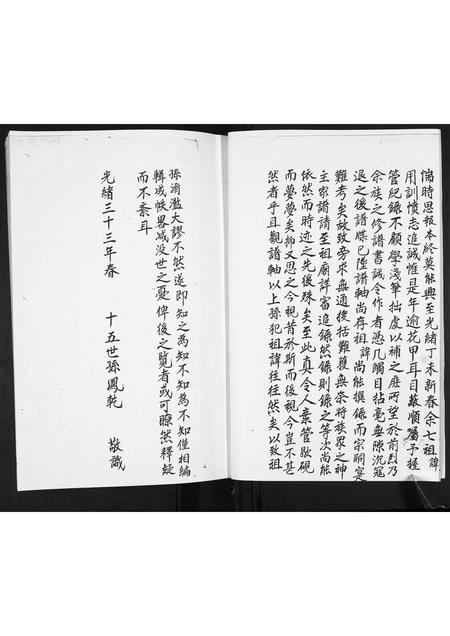 備時思報本終莫能興至光緒丁未新春余七祖諱
用訓憤志追誠惟是年逾花甲耳目敬順囑予握
管紀錄不顧學淺筆拙虔以補之庶所望於前烈乃
余族之修譜書誠令作者憑几觸目拈毫無隙沉寇
退之後譜牒已墜譜軸尚存祖諱尚能撰錄而宗嗣寔
難考矣故致旁求無遺搜括難覆無奈將族眾之神
主家譜請至祖廟詳審追錄然錄則錄之等次尚能
依然而時迹之先後殊矣至此真令人棄管歎硯
而夢夢矣抑又思之今視昔於斯而後視今豈不甚
然者乎且觀譜軸以上孫犯祖諱往往然矣以致祖
孫淆濫大謬不然遂即知之為知不知為不知僅相編
輯成帙畧減没世之憂俾後之覽者或可瞭然釋疑
而不紊耳
光緒三十三年春 十五世孫鳳乾 敬識